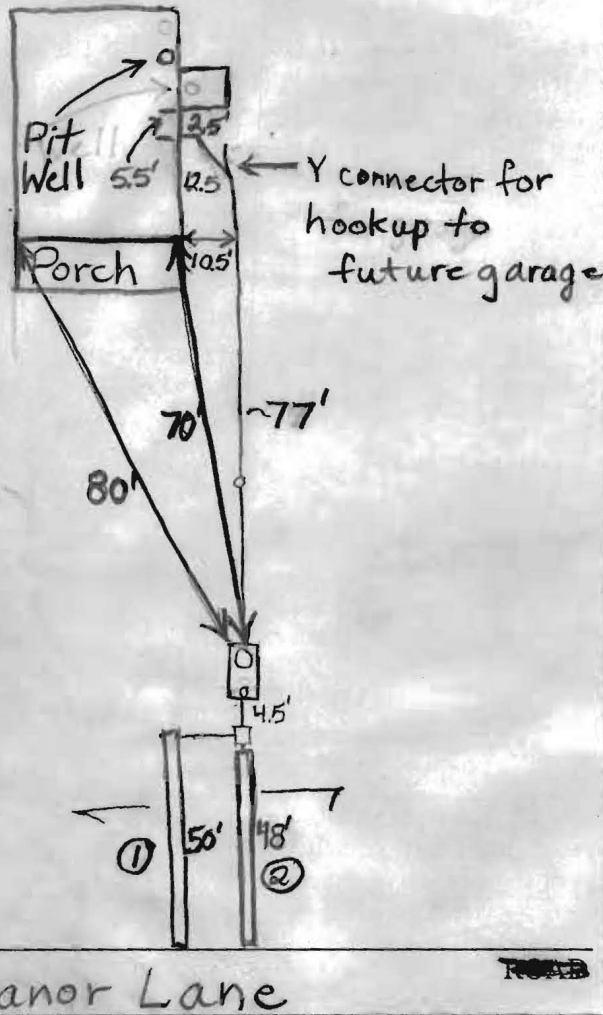 Pit
Well
5.5'
2.5'
12.5
Y connector for
hookup to
future garage
Porch
10.5'
70'
~77'
80'
4.5'
①
50'
48'
②
anor Lane